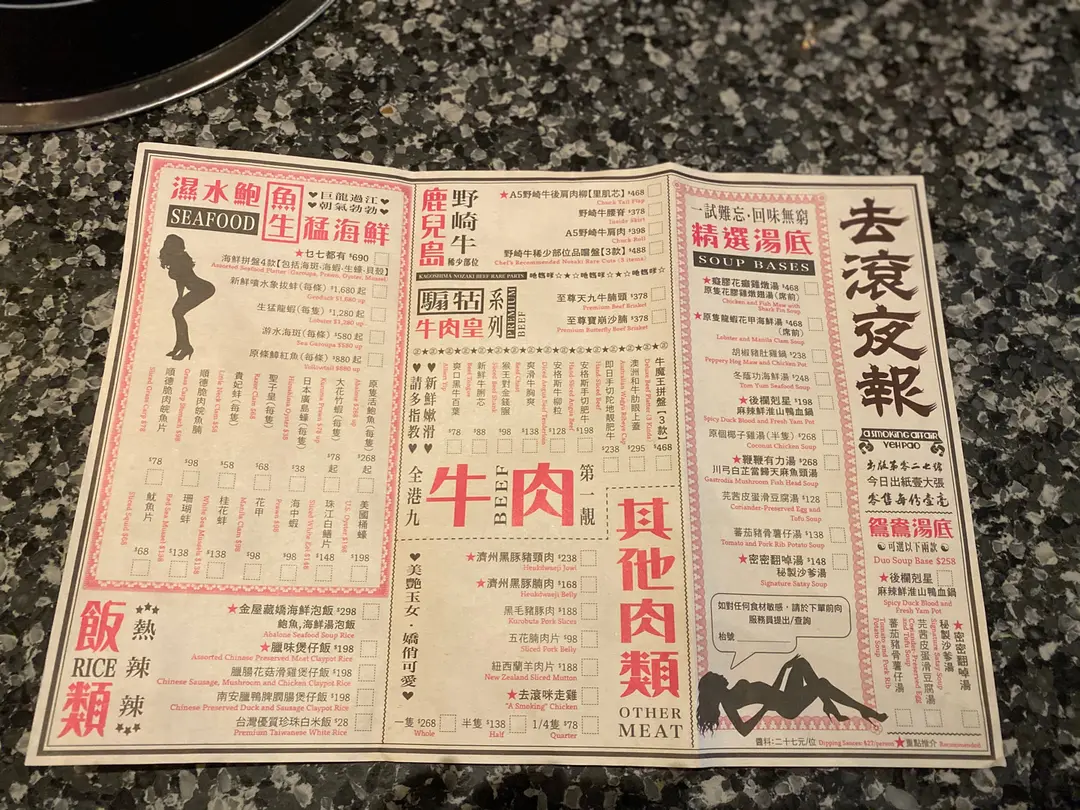 濕水鮑魚生猛海鮮
SEAFOOD
♥巨龍過江♥
朝氣勃勃
★乜七都有 $690
海鮮拼盤4款【包括海斑·海蝦·生蠔·貝殼】
Assorted Seafood Platter (Garoupa, Prawn, Oyster, Mussel)
新鮮噴水象拔蚌(每條) $1,680起
Geoduck $1,680 up
生猛龍蝦(每隻) $1,280起
Lobster $1,280 up
游水海斑(每條) $580起
Sea Garoupa $580 up
原條鰤魚(每條) $880起
Yellowtail $880 up
原隻活鮑魚(每隻) $268起
Abalone $268 up
大花竹蝦(每隻) $78起
Kuruma Prawn $78 up
日本廣島蠔(每隻) $38
Hiroshima Oyster $38
聖子皇(每隻) $68
Razor Clam $68
貴妃蚌(每隻) $58
Little Neck Clam $58
順德脆肉皖魚腩 $98
Grass Carp Brunch $98
順德脆肉皖魚片 $78
Sliced Grass Carp $78
美國桶蠔 $198
U.S. Oyster $198
珠江白鱔片 $148
Sliced White Eel $148
海中蝦 $98
Prawn $98
花甲 $98
Manila Clam $98
桂花蚌 $138
White Sea Mussels $138
珊瑚蚌 $138
Red Sea Mussel $138
魷魚片 $68
Sliced Squid $68
飯類
RICE
熱辣辣
★金屋藏嬌海鮮泡飯 $298
鮑魚,海鮮湯泡飯
Abalone Seafood Soup Rice
★臘味煲仔飯 $198
Assorted Chinese Preserved Meat Claypot Rice
臘腸花菇滑雞煲仔飯 $198
Chinese Sausage, Mushroom and Chicken Claypot Rice
南安臘鴨脾膶腸煲仔飯 $198
Chinese Preserved Duck and Sausage Claypot Rice
台灣優質珍珠白米飯 $28
Premium Taiwanese White Rice
鹿兒島野崎牛
稀少部位
KAGOSHIMA NOZAKI BEEF RARE PARTS
★A5野崎牛後肩肉柳【里肌芯】 $468
Chuck Tail Flap
野崎牛腰脊 $378
Inside Skirt
A5野崎牛肩肉 $398
Chuck Roll
野崎牛稀少部位品嚐盤【3款】 $488
Chef's Recommended Nozaki Rare Cuts (3 items)
騸牯牛肉皇系列
PREMIUM BEEF
至尊天九牛腩頭 $378
Premium Beef Brisket
至尊寶崩沙腩 $378
Premium Butterfly Beef Brisket
♥新鮮嫩滑♥
♥請多指教♥
牛魔王拼盤【3款】 $468
Deluxe Beef Platter (3 Kinds)
澳洲和牛肋眼上蓋 $295
Australian Wagyu Ribeye Cap
即日手切陀地靚肥牛 $238
Hand-Sliced Beef
安格斯手切肥牛 $198
Hand-Sliced Angus Beef
安格斯牛柳粒 $128
Diced Angus Beef Tenderloin
爽滑牛胸爽 $98
猴王對金錢𦟌 $98
新鮮牛脷芯 $88
爽口黑牛百葉 $78
全港九
牛肉
BEEF
第一靚
♥美艷玉女·嬌俏可愛♥
其他肉類
OTHER MEAT
★濟州黑豚豬頸肉 $238
Heukdwaeji Jowl
★濟州黑豚腩肉 $168
Heukdwaeji Belly
黑毛豬豚肉 $188
Kurobuta Pork Slices
五花腩肉片 $98
Sliced Pork Belly
紐西蘭羊肉片 $188
New Zealand Sliced Mutton
★去滾咪走雞
"A Smoking" Chicken
一隻 $268 半隻 $138 1/4隻 $78
Whole Half Quarter
一試難忘·回味無窮
精選湯底
SOUP BASES
★癡膠花雞燉湯 $468
原隻花膠雞燉翅湯(席前)
Chicken and Fish Maw with Shark Fin Soup
★原隻龍蝦花甲海鮮湯 $468
(席前)
Lobster and Manila Clam Soup
胡椒豬肚雞鍋 $238
Peppery Hog Maw and Chicken Pot
冬蔭功海鮮湯 $248
Tom Yum Seafood Soup
★後欄剋星 $198
麻辣鮮淮山鴨血鍋
Spicy Duck Blood and Fresh Yam Pot
原個椰子雞湯(半隻) $268
Coconut Chicken Soup
★鞭鞭有力湯 $268
川弓白芷當歸天麻魚頭湯
Gastrodia Mushroom Fish Head Soup
芫茜皮蛋滑豆腐湯 $128
Coriander-Preserved Egg and Tofu Soup
蕃茄豬骨薯仔湯 $138
Tomato and Pork Rib Potato Soup
★密密翻啅湯 $148
秘製沙爹湯
Signature Satay Soup
如對任何食材敏感,請於下單前向
服務員提出/查詢
枱號
去滾夜報
A SMOKING AFFAIR
YEH PAO
出版第零二七號
今日出紙壹大張
零售每份壹毫
鴛鴦湯底
可選以下兩款
Duo Soup Base $258
★後欄剋星
麻辣鮮淮山鴨血鍋
Spicy Duck Blood and Fresh Yam Pot
★密密翻啅湯
秘製沙爹湯
Signature Satay Soup
芫茜皮蛋滑豆腐湯
Coriander-Preserved Egg and Tofu Soup
蕃茄豬骨薯仔湯
Tomato and Pork Rib Potato Soup
醬料:二十七元/位 Dipping Sauces $27/person ★重點推介 Recommended